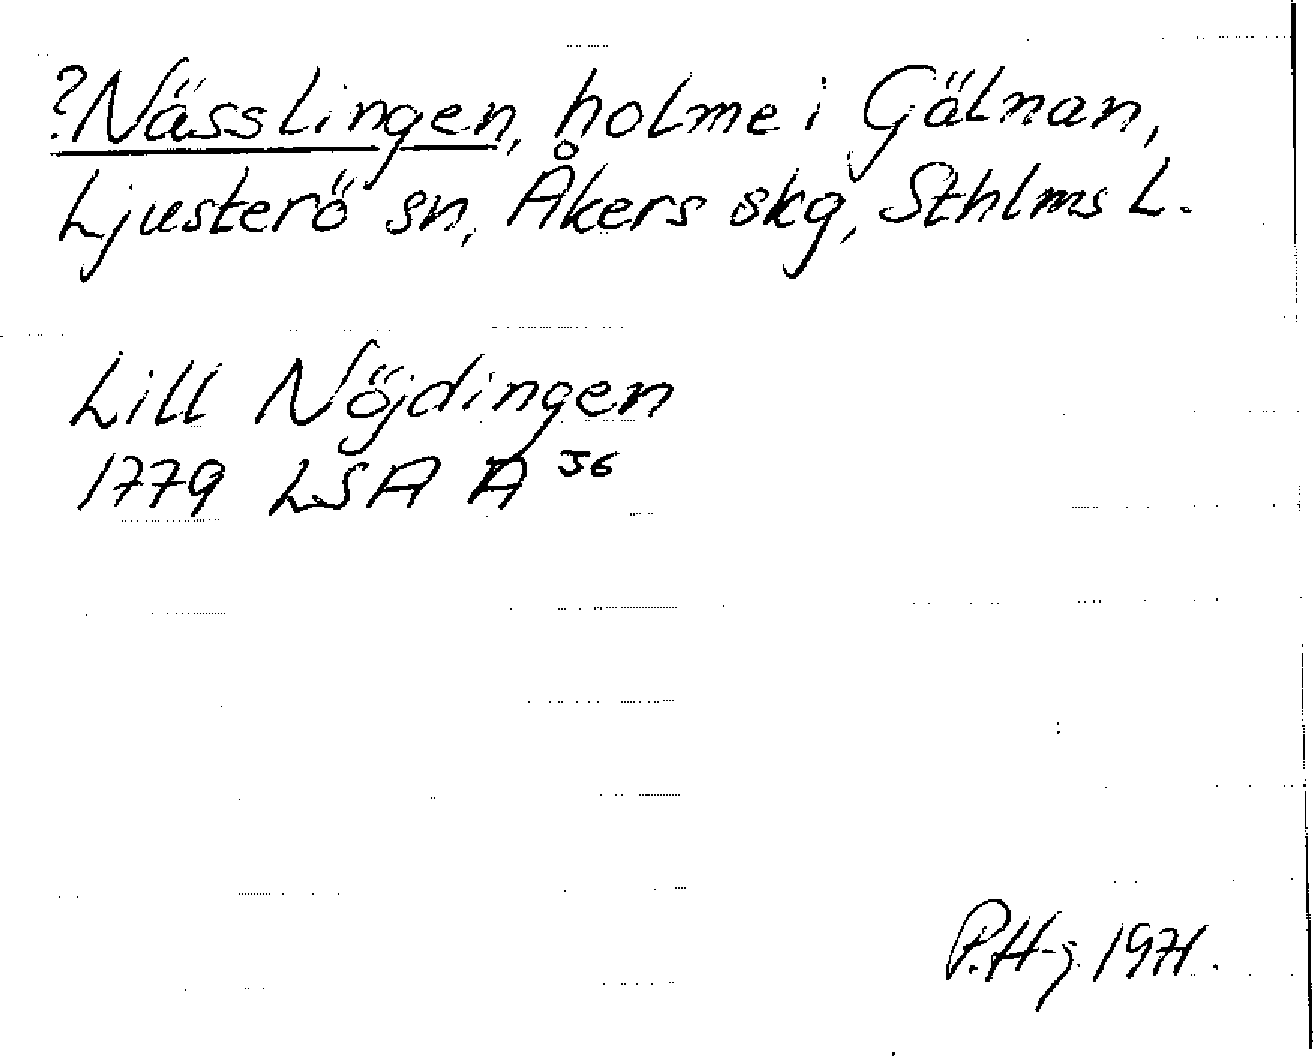 ?Nässlingen, holme i Gälnan,
Ljusterö sn, Åkers skg, Sthlms L.
Lill Nöjdingen
1779 LSA A 56
P. H-g. 1971.